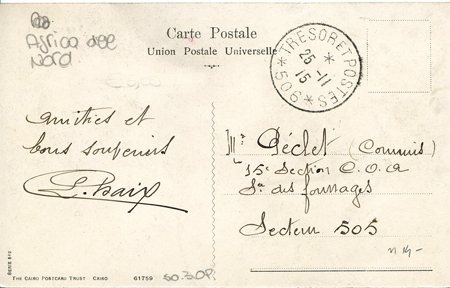 Africa dee
Nord
Carte Postale
Union Postale Universelle
* TRESOR ET POSTES *
25-11
15
* 905 *
amitiés et
bons souvenirs
Péclet (Commis)
15e Section C.O.A
Sn des fourrages
Secteur 505
SERIE 510
THE CAIRO POSTCARD TRUST CAIRO
61759
50.30P.